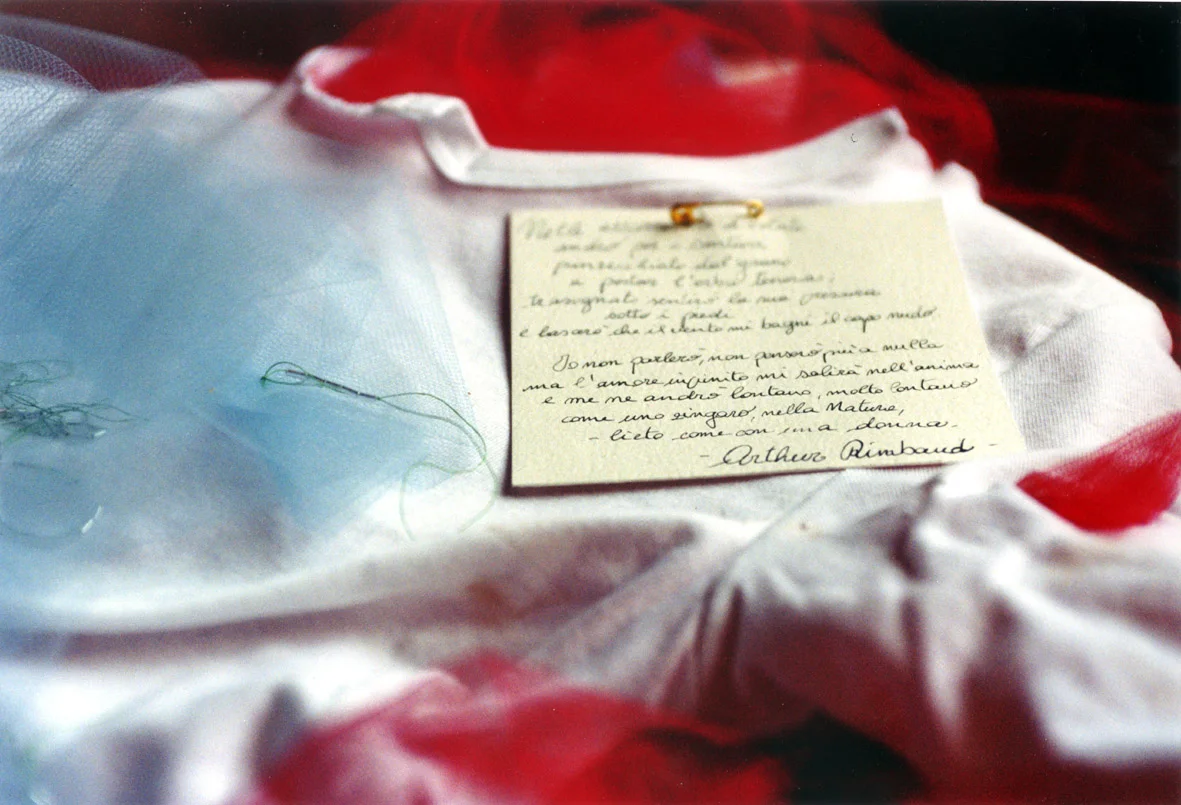 Nelle azzurre sere d'estate
andrò per i sentieri
punzecchiato dal grano
a pestar l'erba tenera;
trasognato sentirò la sua frescura
sotto i piedi
e lascerò che il vento mi bagni il capo nudo.
Io non parlerò, non penserò più a nulla
ma l'amore infinito mi salirà nell'anima
e me ne andrò lontano, molto lontano
come uno zingaro, nella Natura,
- lieto come con una donna.
- Arthur Rimbaud -